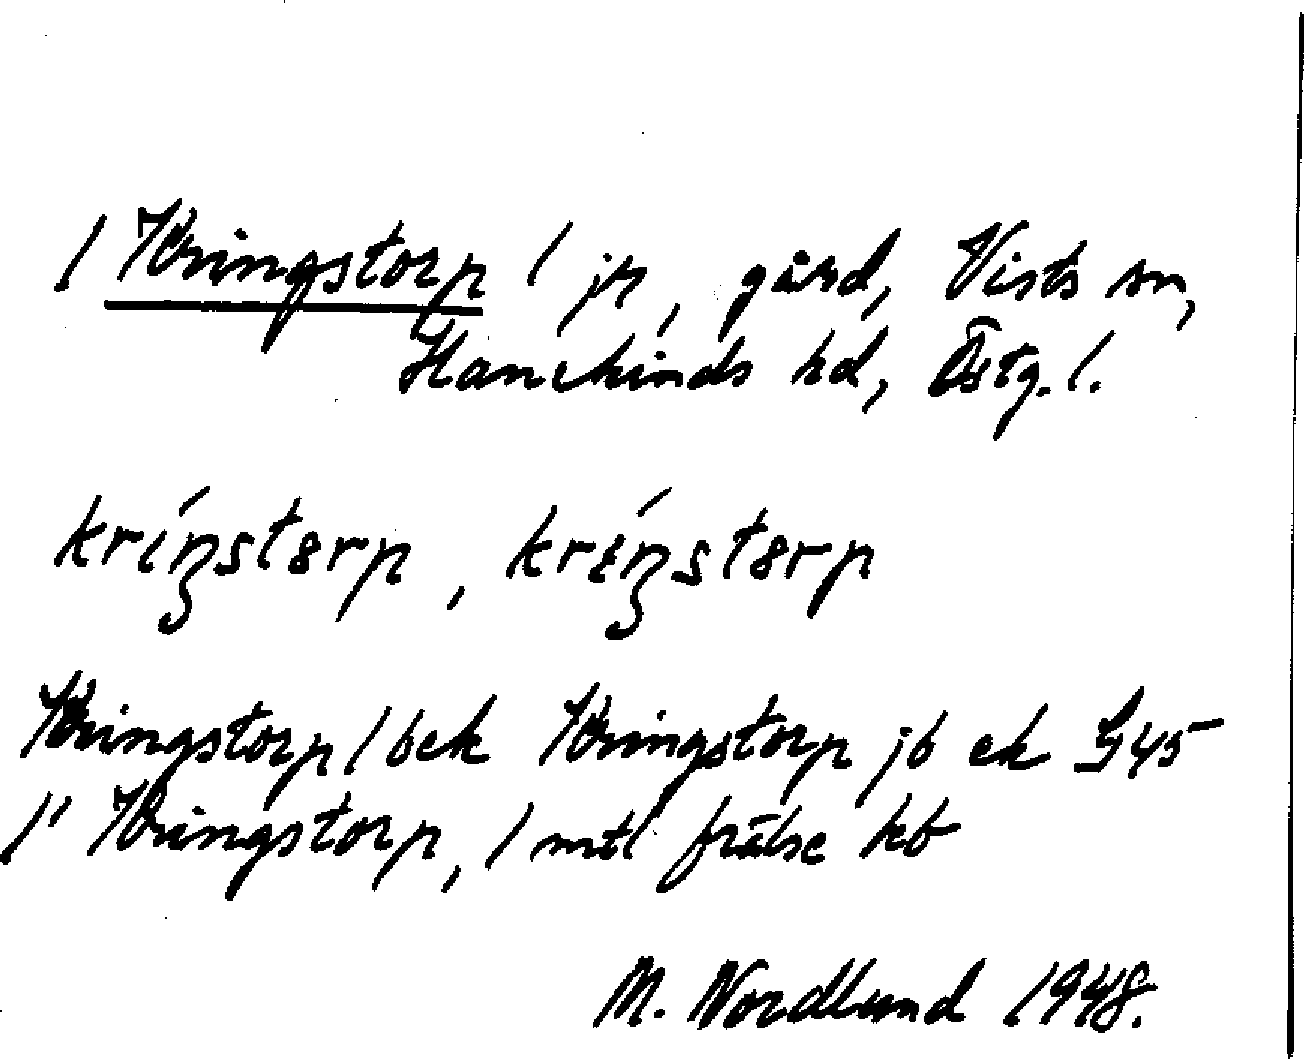 1 Kringstorp 1 jp, gård, Vists sn,
Hanekinds hd, Östg. l.
kríŋstɵrp, krɛ́ŋstɵrp
Kringstorp 1 bek Kringstorp jb ek G45
1' Kringstorp, 1 mtl frälse kb
M. Nordlund 1948.